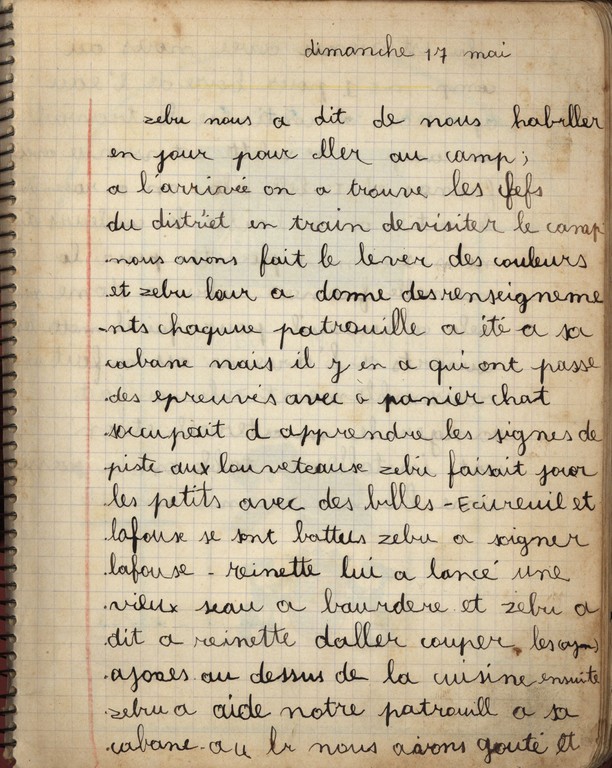 dimanche 17 mai
zebu nous a dit de nous habiller
en jour pour aller au camp;
a l'arrivée on a trouve les chefs
du district en train devisiter le camp
nous avons fait le lever des couleurs
et zebu leur a donne desrenseigneme
-nts chaquue patrouille a été a sa
cabane mais il y en a qui ont passe
des epreuves avec a panier chat
soccupait d apprendre les signes de
piste aux louveteause zebu faisait jouer
les petits avec des billes - Ecureuil et
lafouse se sont battus zebu a soigner
lafouse - reinette lui a lancé une
vieux seau a baurdere et zebu a
dit a reinette daller couper les
ajoncs au dessus de la cuisine ensuite
zebu a aide notre patrouill a sa
cabane a u nous avons gouté et